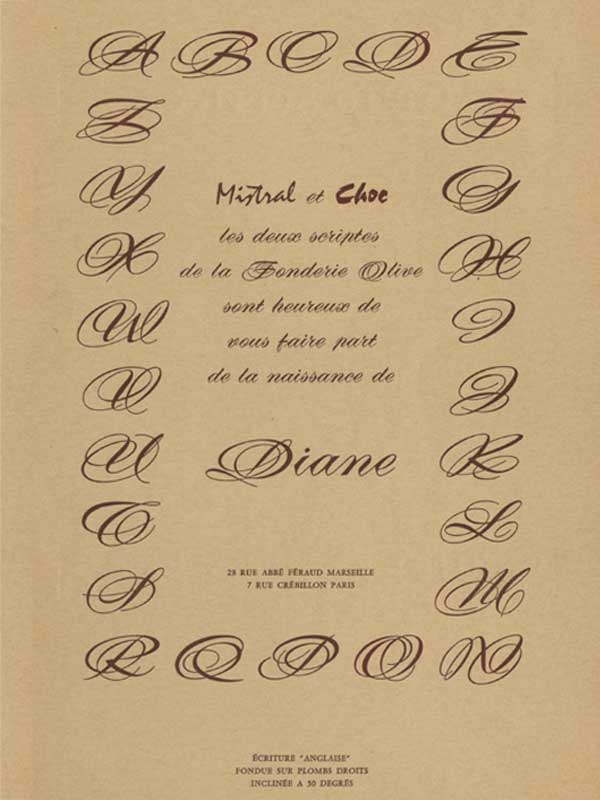 A B C D E
F
G
H
I
J
K
L
M
N
O
P
Q
R
S
T
U
V
W
X
Y
Z
Mistral et Choc
les deux scriptes
de la Fonderie Olive
sont heureux de
vous faire part
de la naissance de
Diane
28 RUE ABBÉ FÉRAUD MARSEILLE
7 RUE CRÉBILLON PARIS
ÉCRITURE "ANGLAISE"
FONDUE SUR PLOMBS DROITS
INCLINÉE A 30 DEGRÉS